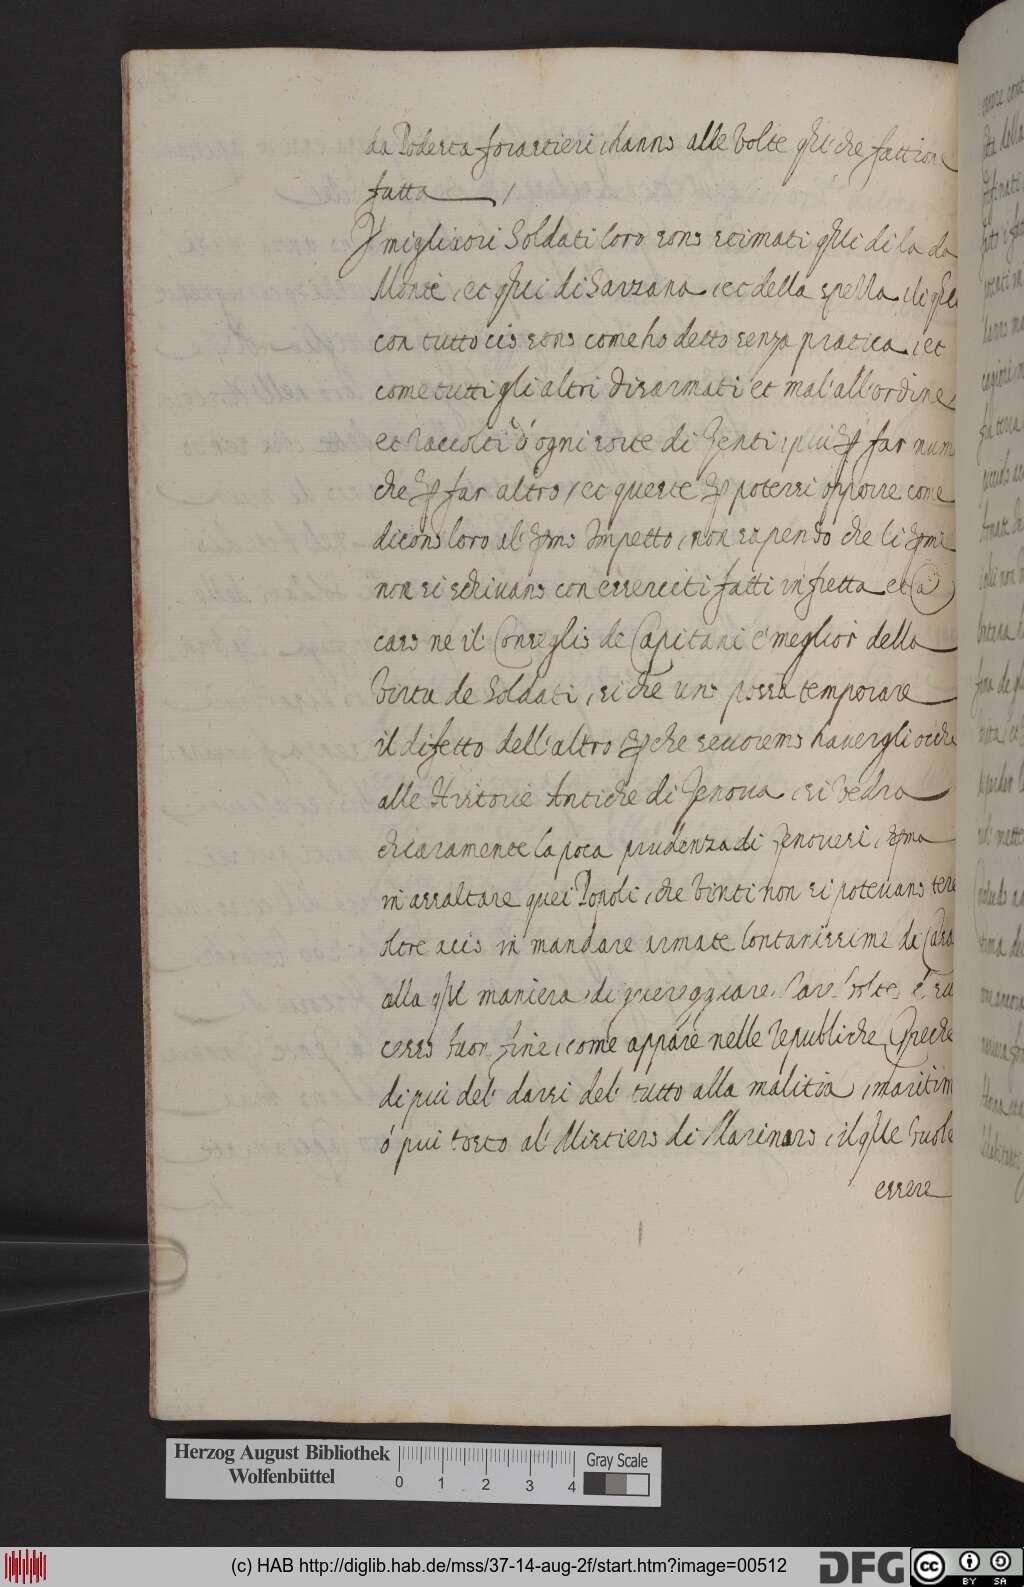 da Podestà forastieri, hanno alle volte qlche fattione
fatta /
Per migliori Soldati loro sono stimati qlli di la da
Monte, et qlli di Sarzana, et della spetia, li qlli
con tutto cio sono come ho detto senza pratica, et
come tutti gli altri disarmati et mal' all' ordine
et raccolti d'ogni sorte di Genti, piu per far num
che per far altro, et queste per potersi opporre come
dicono loro al pmo Impetto, non sapendo che li pmi
non si schivano con esserciti fatti in fretta et a
caso ne il Conseglio de Capitani e' meglior della
virtu de Soldati, si che uno possa temporare
il difetto dell' altro perche se uoremo hauer gli occhi
alle Historie Antiche di Genoua, si vedra
chiaramente la poca prudenza di Genouesi, pma
in assaltare quei Popoli, che vinti non si poteuano tene
oltre acio in mandare armate lontanissime da Casa
alla qlle maniera di guereggiare, rare volte e' su
cesso buon fine, come appare nelle republiche Greche
di piu del' darsi del' tutto alla malitia, maritim
ó piu tosto al' Mistiero di Marinaro, il qlle suole
essere
Herzog August Bibliothek
Wolfenbüttel
0 1 2 3 4
Gray Scale
(c) HAB http://diglib.hab.de/mss/37-14-aug-2f/start.htm?image=00512
DFG
cc BY SA